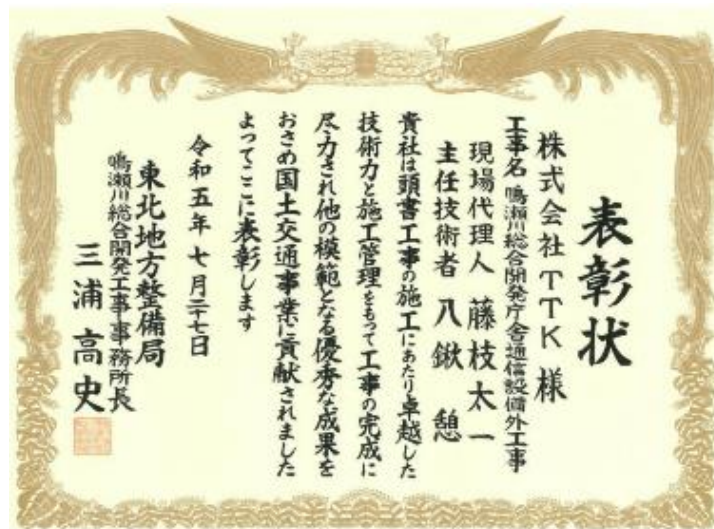 表彰状
株式会社TTK様
工事名 鳴瀬川総合開発庁舎通信設備外工事
現場代理人 藤枝太一
主任技術者 八鍬 憩
貴社は頭書工事の施工にあたり卓越した
技術力と施工管理をもって工事の完成に
尽力され他の模範となる優秀な成果を
おさめ国土交通事業に貢献されました
よってここに表彰します
令和五年七月二十七日
東北地方整備局
鳴瀬川総合開発工事事務所長
三浦高史